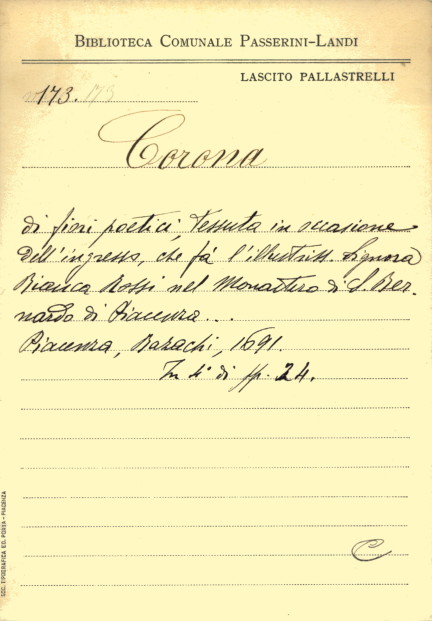 BIBLIOTECA COMUNALE PASSERINI-LANDI
LASCITO PALLASTRELLI
173.
Corona
di fiori poetici, tessuta in occasione
dell'ingresso, che fà l'illustriss. Signora
Bianca Rossi nel Monastero di S. Ber-
nardo di Piacenza...
Piacenza, Bazachi, 1691.
In 4° di pp. 24.
C
SOC. TIPOGRAFICA ED. PORTA - PIACENZA